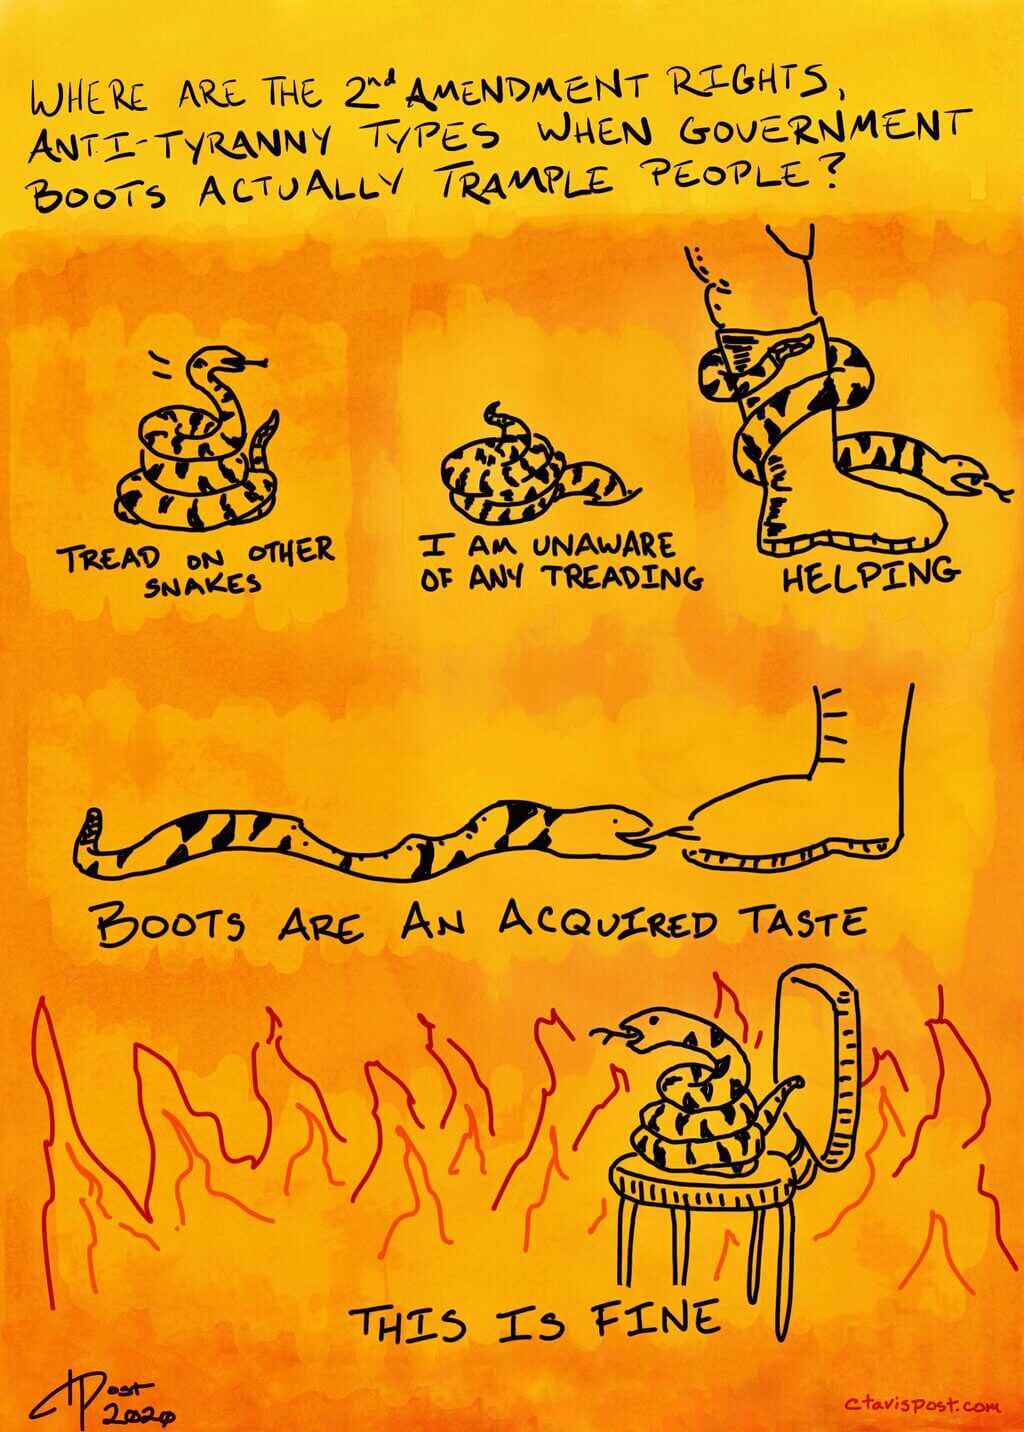 WHERE ARE THE 2nd AMENDMENT RIGHTS,
ANTI-TYRANNY TYPES WHEN GOVERNMENT
BOOTS ACTUALLY TRAMPLE PEOPLE?
TREAD ON OTHER
SNAKES
I AM UNAWARE
OF ANY TREADING
HELPING
BOOTS ARE AN ACQUIRED TASTE
THIS IS FINE
CTPost
2020
ctavispost.com